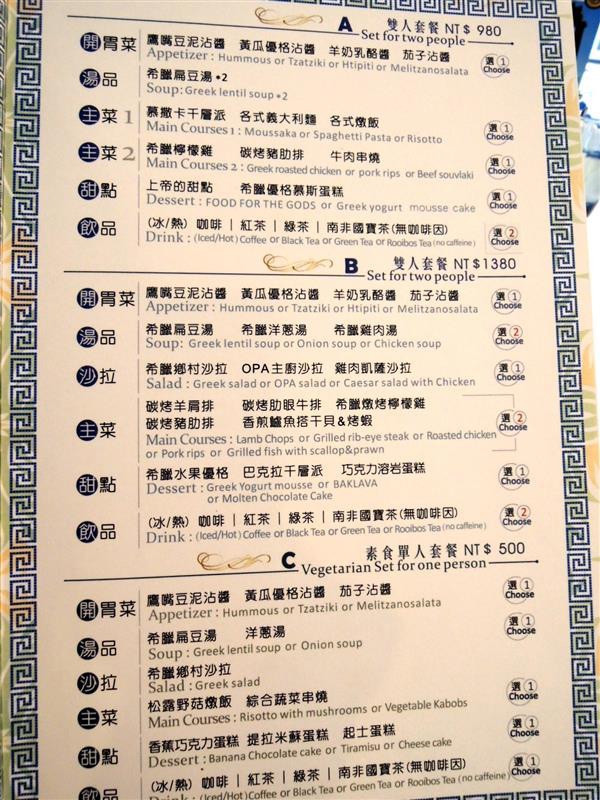 A 雙人套餐 NT$ 980
Set for two people
開胃菜 鷹嘴豆泥沾醬 黃瓜優格沾醬 羊奶乳酪醬 茄子沾醬 選1
Appetizer: Hummous or Tzatziki or Htipiti or Melitzanosalata Choose
湯品 希臘扁豆湯*2
Soup: Greek lentil soup *2
主菜1 慕撒卡千層派 各式義大利麵 各式燉飯 選1
Main Courses 1: Moussaka or Spaghetti Pasta or Risotto Choose
主菜2 希臘檸檬雞 碳烤豬肋排 牛肉串燒 選1
Main Courses 2: Greek roasted chicken or pork rips or Beef souvlaki Choose
甜點 上帝的甜點 希臘優格慕斯蛋糕 選1
Dessert: FOOD FOR THE GODS or Greek yogurt mousse cake Choose
飲品 (冰/熱) 咖啡 | 紅茶 | 綠茶 | 南非國寶茶(無咖啡因) 選2
Drink: (Iced/Hot) Coffee or Black Tea or Green Tea or Rooibos Tea (no caffeine) Choose
B 雙人套餐 NT$1380
Set for two people
開胃菜 鷹嘴豆泥沾醬 黃瓜優格沾醬 羊奶乳酪醬 茄子沾醬 選1
Appetizer: Hummous or Tzatziki or Htipiti or Melitzanosalata Choose
湯品 希臘扁豆湯 希臘洋蔥湯 希臘雞肉湯 選2
Soup: Greek lentil soup or Onion soup or Chicken soup Choose
沙拉 希臘鄉村沙拉 OPA主廚沙拉 雞肉凱薩沙拉 選1
Salad: Greek salad or OPA salad or Caesar salad with Chicken Choose
碳烤羊肩排 碳烤肋眼牛排 希臘燉烤檸檬雞
主菜 碳烤豬肋排 香煎鱸魚搭干貝&烤蝦 選2
Main Courses: Lamb Chops or Grilled rib-eye steak or Roasted chicken Choose
or Pork rips or Grilled fish with scallop&prawn
甜點 希臘水果優格 巴克拉千層派 巧克力溶岩蛋糕 選1
Dessert: Greek Yogurt mousse or BAKLAVA Choose
or Molten Chocolate Cake
飲品 (冰/熱) 咖啡 | 紅茶 | 綠茶 | 南非國寶茶(無咖啡因) 選2
Drink: (Iced/Hot) Coffee or Black Tea or Green Tea or Rooibos Tea (no caffeine) Choose
C 素食單人套餐 NT$ 500
Vegetarian Set for one person
開胃菜 鷹嘴豆泥沾醬 黃瓜優格沾醬 茄子沾醬 選1
Appetizer: Hummous or Tzatziki or Melitzanosalata Choose
湯品 希臘扁豆湯 洋蔥湯 選1
Soup: Greek lentil soup or Onion soup Choose
沙拉 希臘鄉村沙拉
Salad: Greek salad
主菜 松露野菇燉飯 綜合蔬菜串燒 選1
Main Courses: Risotto with mushrooms or Vegetable Kabobs Choose
甜點 香蕉巧克力蛋糕 提拉米蘇蛋糕 起士蛋糕 選1
Dessert: Banana Chocolate cake or Tiramisu or Cheese cake Choose
飲品 (冰/熱) 咖啡 | 紅茶 | 綠茶 | 南非國寶茶(無咖啡因) 選1
Drink: (Iced/Hot) Coffee or Black Tea or Green Tea or Rooibos Tea (no caffeine) Choose